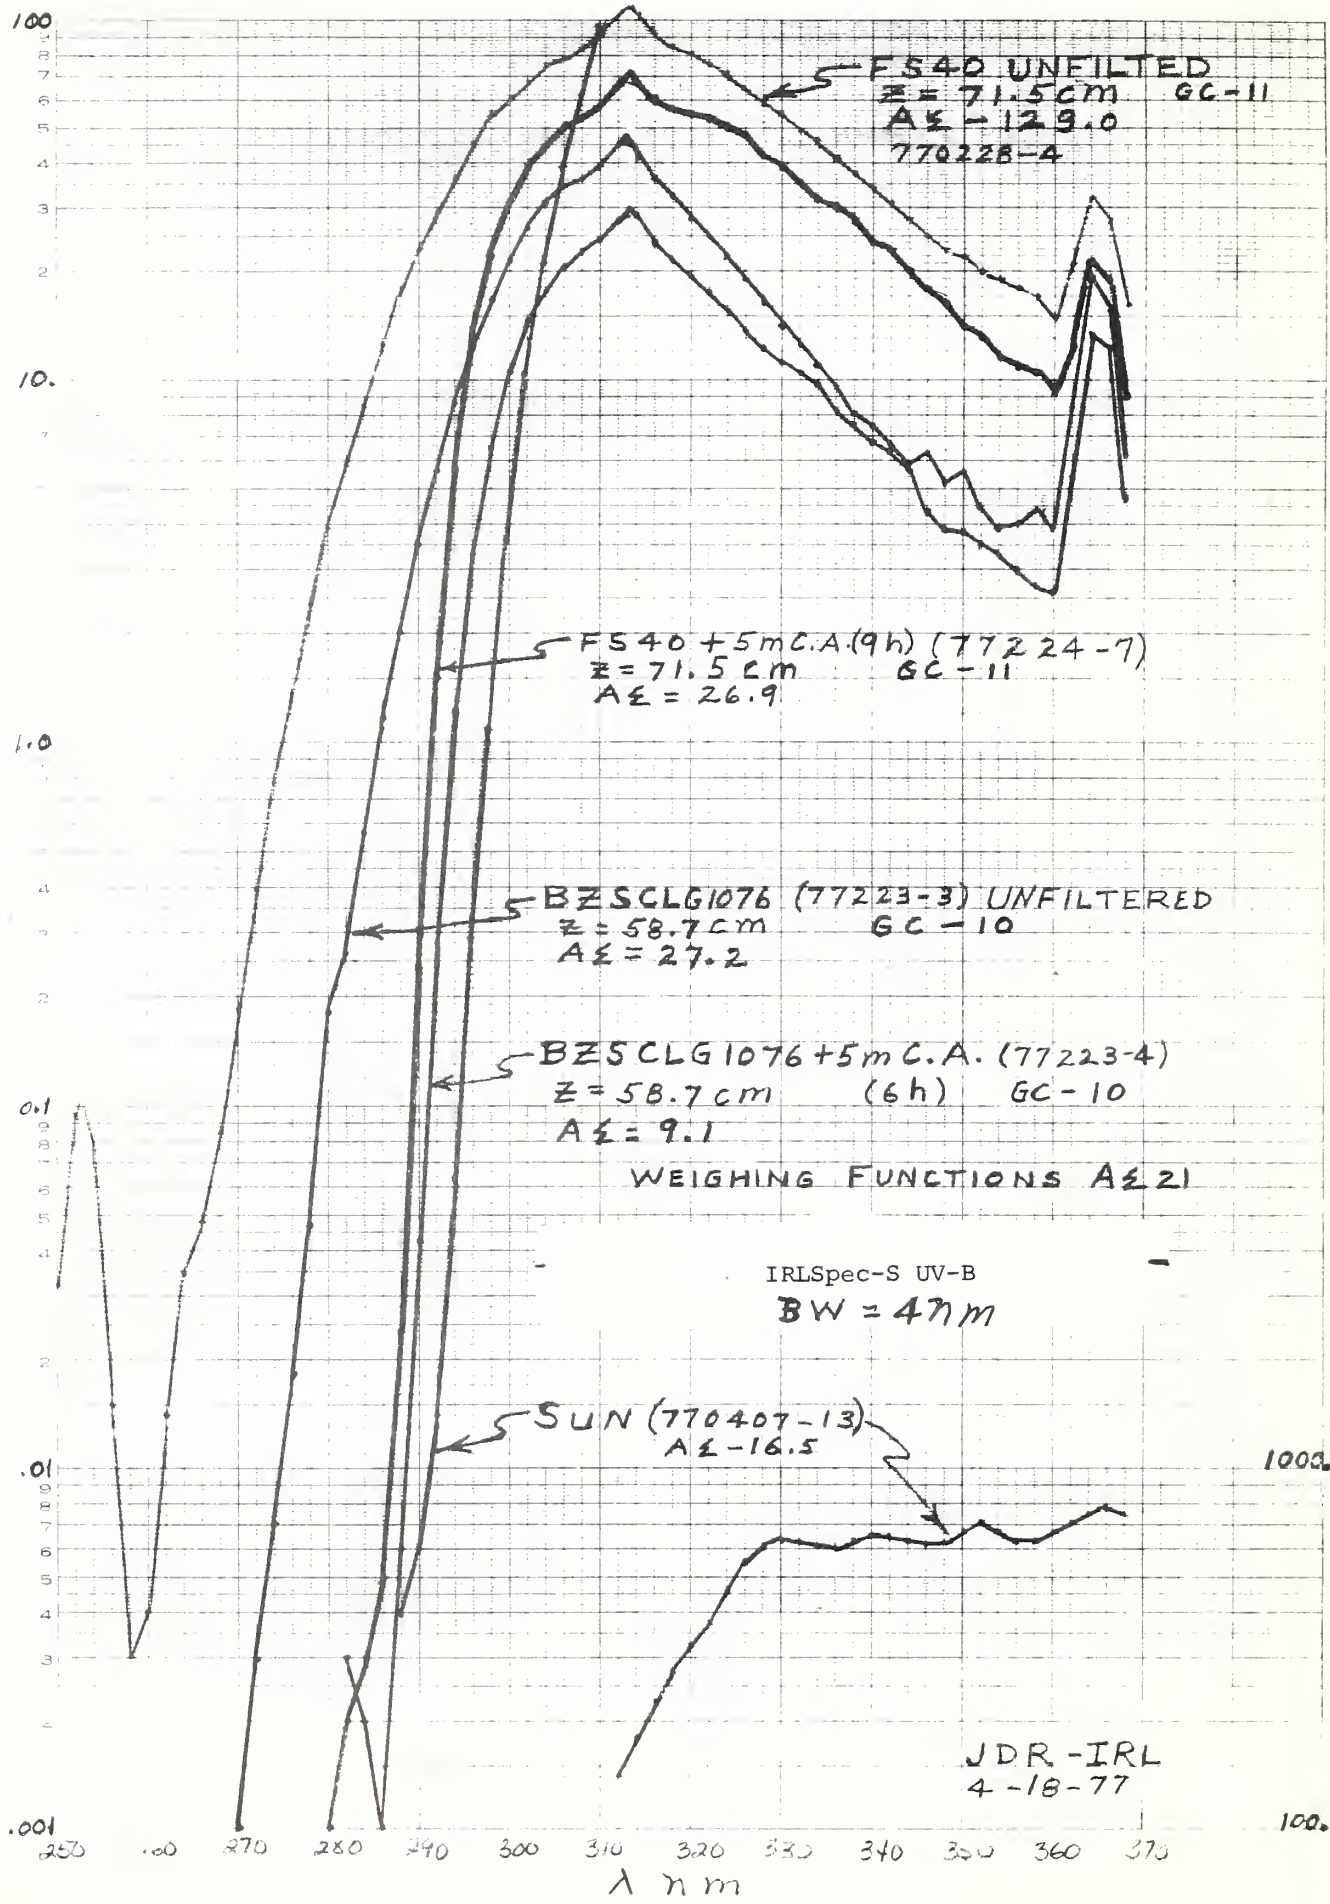 100
9
8
7
6
5
4
3
2
10.
7
1.0
4
3
2
0.1
9
8
7
6
5
4
2
.01
9
8
7
6
5
4
3
2
.001
FS40 UNFILTED
Z = 71.5cm GC-11
AΣ -129.0
770228-4
FS40 +5m C.A.(9h) (77224-7)
Z = 71.5 cm GC-11
AΣ = 26.9
BZSCLG1076 (77223-3) UNFILTERED
Z = 58.7cm GC-10
AΣ = 27.2
BZSCLG1076+5m C.A. (77223-4)
Z = 58.7 cm (6h) GC-10
AΣ = 9.1
WEIGHING FUNCTIONS AΣ21
IRLSpec-S UV-B
BW = 4nm
SUN (770407-13)
AΣ -16.5
1000.
JDR-IRL
4-18-77
100.
250 260 270 280 290 300 310 320 330 340 350 360 370
λ nm